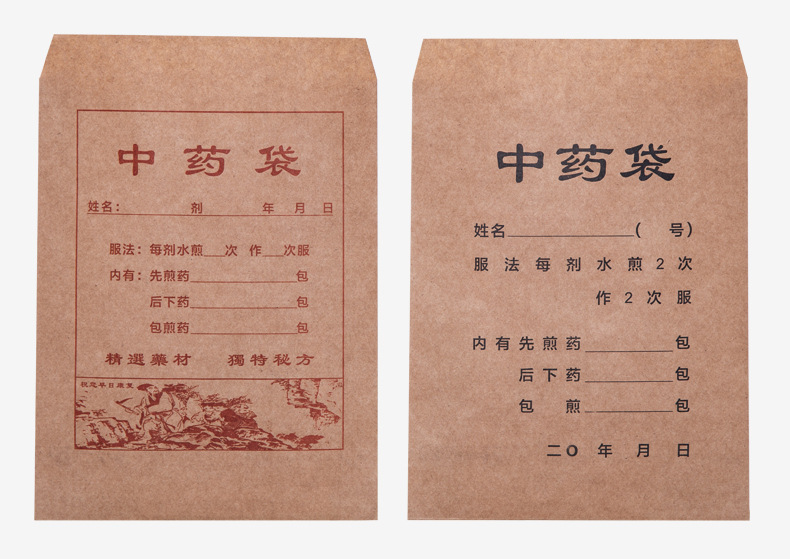 中药袋
姓名：____________剂 年 月 日
服法：每剂水煎___次 作___次服
内有：先煎药________________包
后下药________________包
包煎药________________包
精選藥材 獨特秘方
祝您早日康复
中药袋
姓名________________( 号)
服法每剂水煎2次
作2次服
内有先煎药____________包
后下药____________包
包 煎____________包
二〇 年 月 日